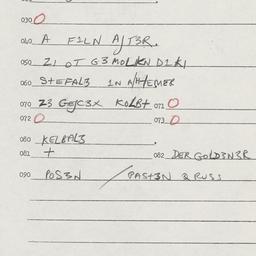 030 O
040 A F1LN AJT3R.
050 Z1 OT G3MOLKN D1K1
060 STEFAL3 1N
070 Z3 GEJC3X KOLB+ 071 O
072 O 073 O
080 KELBAL3
081 + 082 DER GOLD3N3R
090 POS3N / PAST3N & RUSS